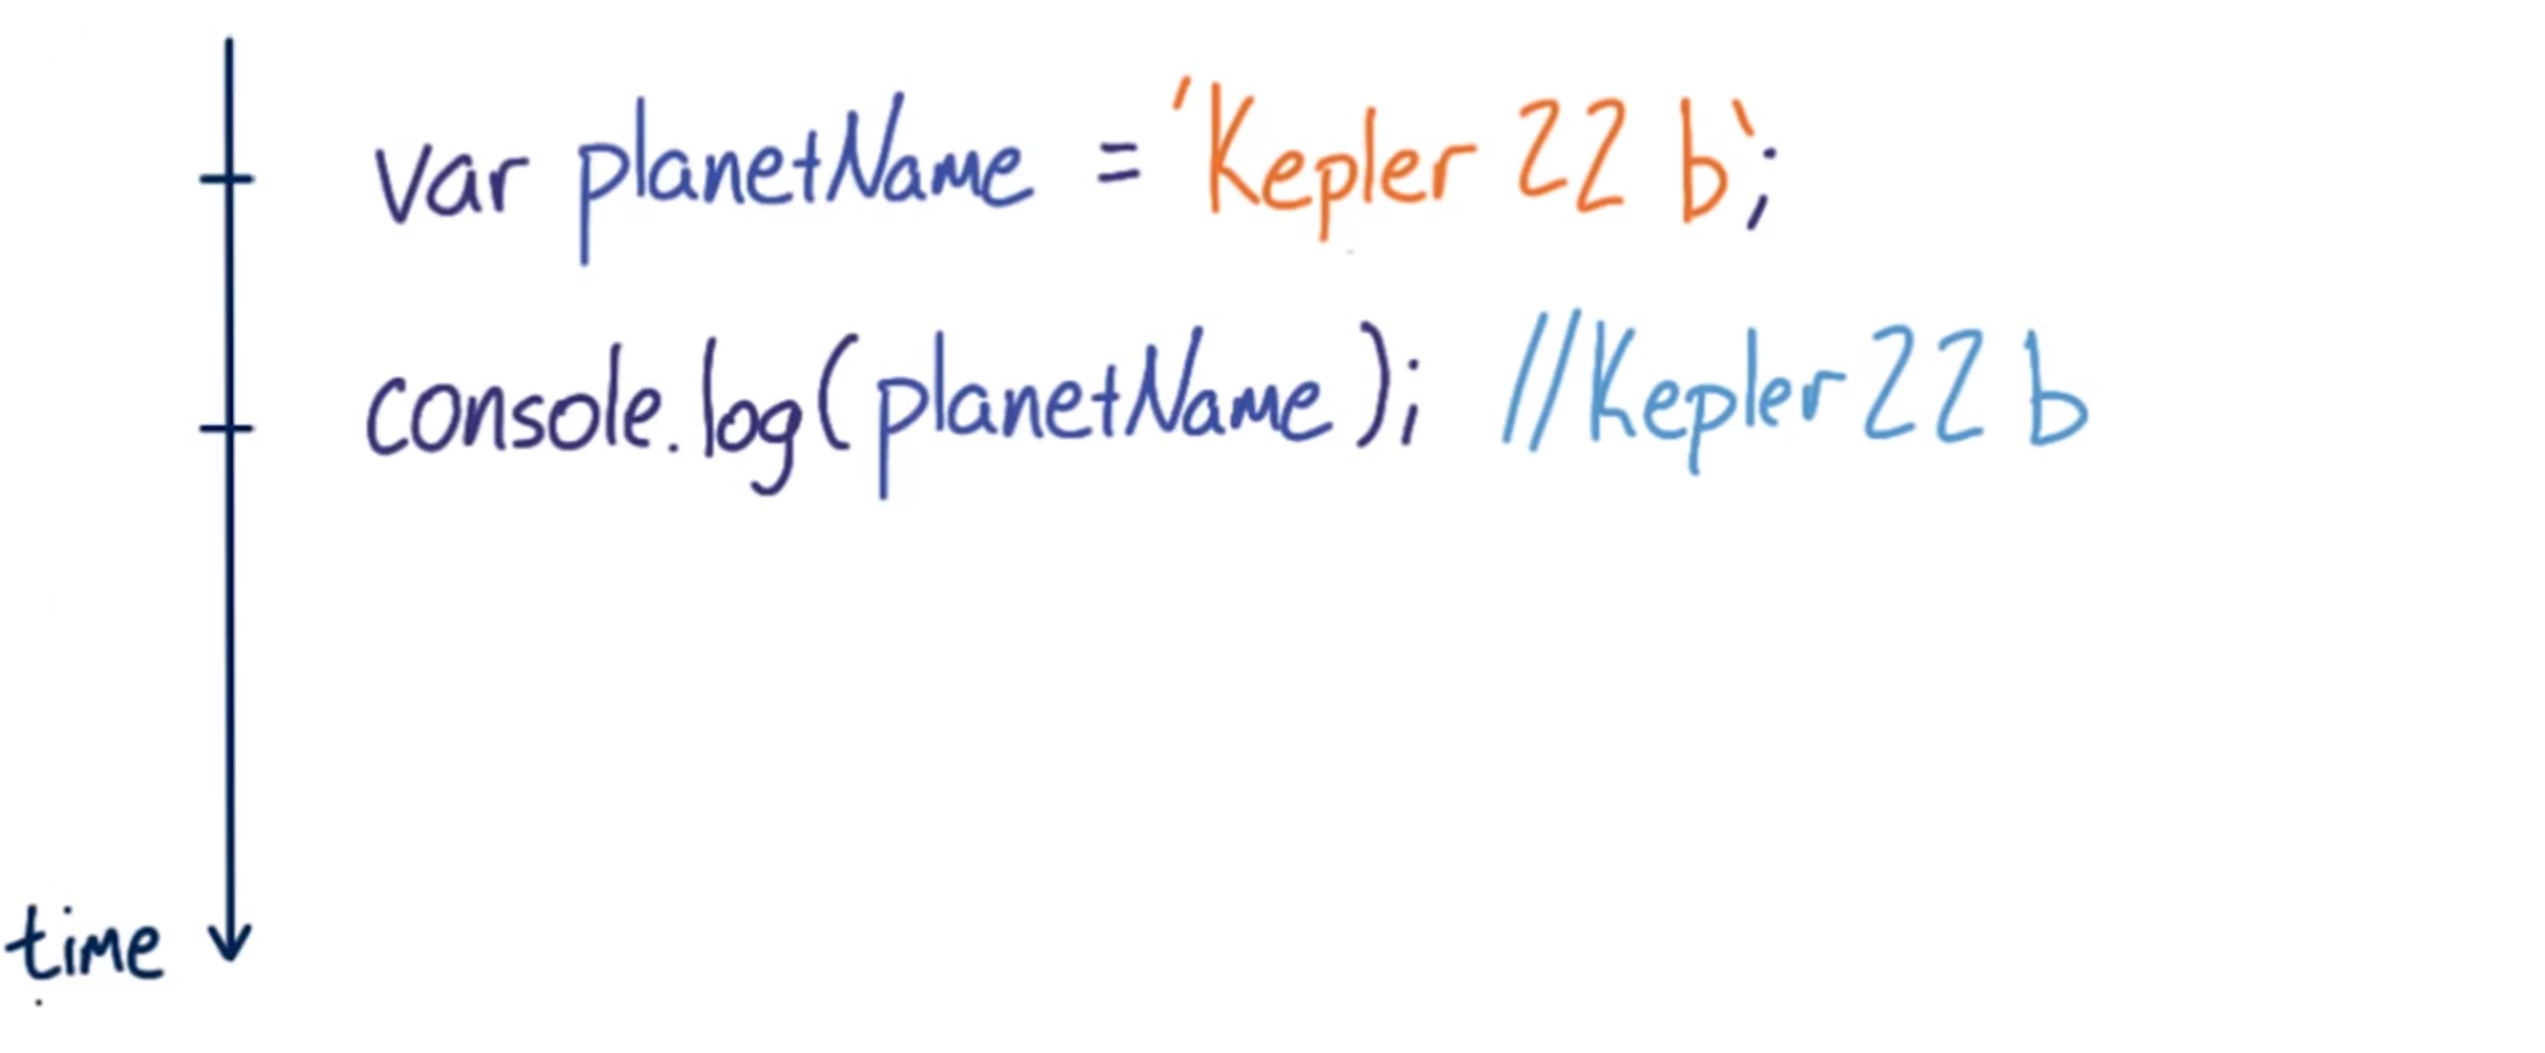 var planetName = 'Kepler 22 b';
console.log(planetName); //Kepler 22 b
time